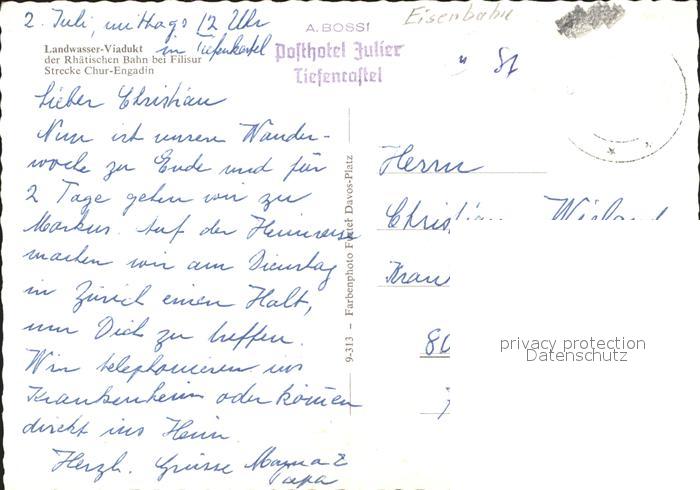 2. Juli, mittags 12 Uhr
in Tiefenkastel
Landwasser-Viadukt
der Rhätischen Bahn bei Filisur
Strecke Chur-Engadin
A. BOSSI
Posthotel Julier
Tiefencastel
Eisenbahn
Lieber Christian
Nun ist unsere Wander-
woche zu Ende und für
2 Tage gehen wir zu
Markus. Auf der Heimreise
machen wir am Dienstag
in Zürich einen Halt,
um Dich zu treffen.
Wir telephonieren ins
Krankenheim oder kommen
direkt ins Heim.
Herzl. Grüsse Mama &
Papa
9-313 – Farbenphoto Furter Davos-Platz
Herrn
Christian
Kran
80
privacy protection
Datenschutz